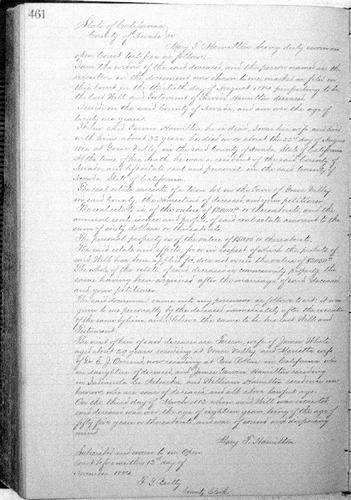 461
State of California
County of Nevada SS
Mary F. Hamilton being duly sworn in
open Court testifies as follows:
I am the widow of the said deceased and the person named as the
in the document now shown to me marked as filed in
this Court on the thirtieth day of August 1884 purporting to be
the last Will and Testament of Hamilton deceased
I reside in the said County of Nevada, and am over the age of
years.
Hamilton he is dead, I was his wife and lived
with him about 32 years he died on or about the 22nd day of August
1884 at Grass Valley in the said County of Nevada, State of California
At the time of his death he was a resident of the said County of
Nevada, and left estate real and personal in the said County of
Nevada State of California.
The real estate consists of a town lot in the Town of Grass Valley
in said County, the homestead of deceased and your petitioner
The real estate is of the value of or thereabouts, and the
annual rents issues and profits of said real estate amount to the
sum of sixty dollars or thereabouts.
The personal property is of the value of or thereabouts.
The said estate and effects for or in respect of which the probate of
said Will has been applied for, does not exceed the value of
The whole of the estate of said deceased is community property the
same having been acquired after the marriage of said deceased
and your petitioner.
The said document came into my possession as follows to wit: it was
given to me personally by the deceased immediately after the execution
of the same by him, and I believe the same to be his last Will and
Testament.
The next of kin of said deceased are wife of James White
aged about years residing at Grass Valley and wife
of Dr. E. J. residing at in California who
are daughters of deceased and James Hamilton residing
in and William Hamilton residence un
known who are sons of deceased, and all above lawful age.
On the third day of March 1882 when said Will was executed
said deceased was over the age of eighteen years, being of the age of
fifty five years or thereabouts and was of sound and disposing
mind.
Mary F. Hamilton
Subscribed and sworn to in Open
Court before me this 12th day of
1884
F. G. Beatty
County Clerk